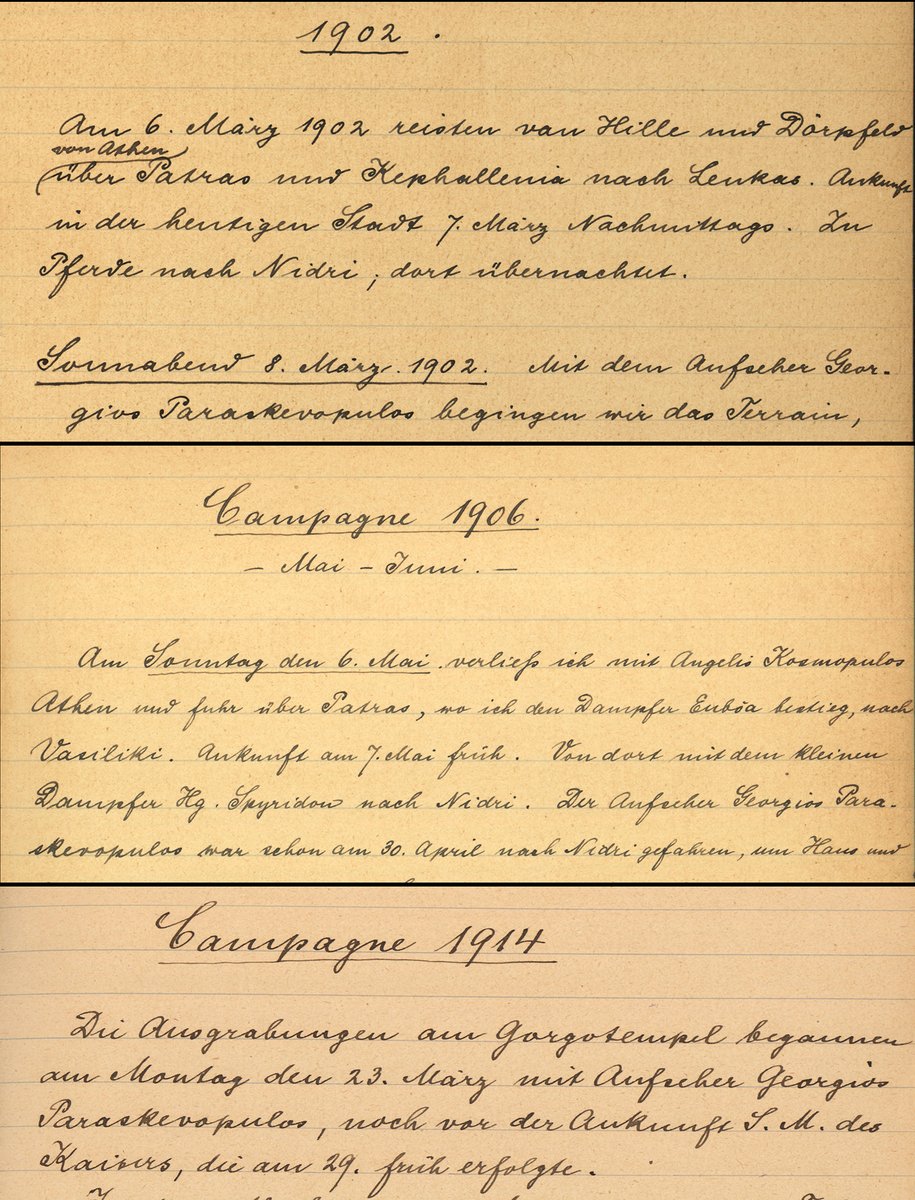 1902.
Am 6. März 1902 reisten van Hille und Dörpfeld
von Athen
über Patras und Kephallenia nach Leukas. Ankunft
in der heutigen Stadt 7. März Nachmittags. Zu
Pferde nach Nidri; dort übernachtet.
Sonnabend 8. März. 1902. Mit dem Aufseher Geor-
gios Paraskevopulos begingen wir das Terrain,
Campagne 1906.
— Mai – Juni. —
Am Sonntag den 6. Mai verließ ich mit Angelis Kosmopulos
Athen und fuhr über Patras, wo ich den Dampfer Euböa bestieg, nach
Vasiliki. Ankunft am 7. Mai früh. Von dort mit dem kleinen
Dampfer Hg. Spyridon nach Nidri. Der Aufseher Georgios Para-
skevopulos war schon am 30. April nach Nidri gefahren, um Haus und
Campagne 1914
Die Ausgrabungen am Gorgotempel begannen
am Montag den 23. März mit Aufseher Georgios
Paraskevopulos, noch vor der Ankunft S. M. des
Kaisers, die am 29. früh erfolgte.